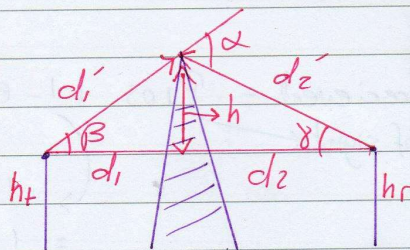 α
d₁′ d₂′
h
β γ
d₁ d₂
ht hr